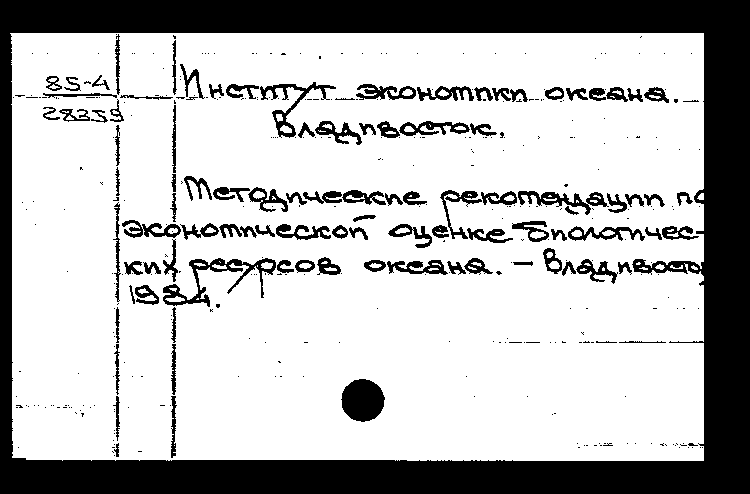 85-4
28359
Институт экономики океана.
Владивосток.
Методические рекомендации по
экономической оценке биологичес-
ких ресурсов океана. – Владивосток
1984.